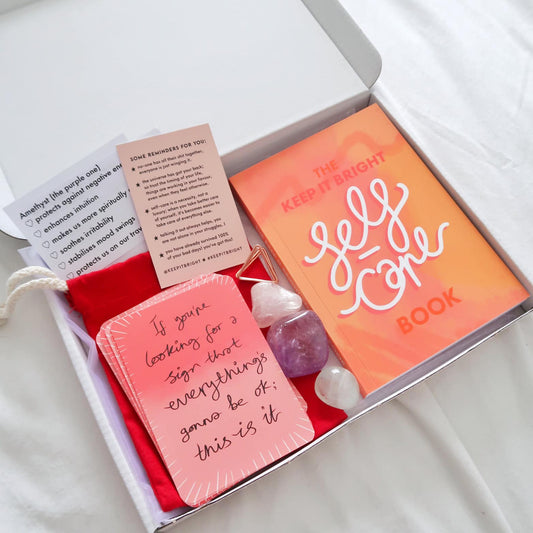 Amethyst (the purple one)
protects against negative
enhances intuition
makes us more spiritually
soothes irritability
stabilises mood swings
protects us on our
SOME REMINDERS FOR YOU!
no-one has all their shit together,
everyone is just winging it.
the universe has got your back;
so trust the timing of your life,
things are working in your favour,
even when they feel otherwise.
self-care is a necessity, not a
luxury; when you take better care
of yourself, it's becomes easier to
take care of everything else.
talking it out always helps, you
are not alone in your struggles.
you have already survived 100%
of your bad days! you've got this!
#KEEPITBRIGHT #KEEPITBRIGHT
THE
KEEP IT BRIGHT
self
-
care
BOOK
If you're
looking for a
sign that
everything's
gonna be ok;
this is it